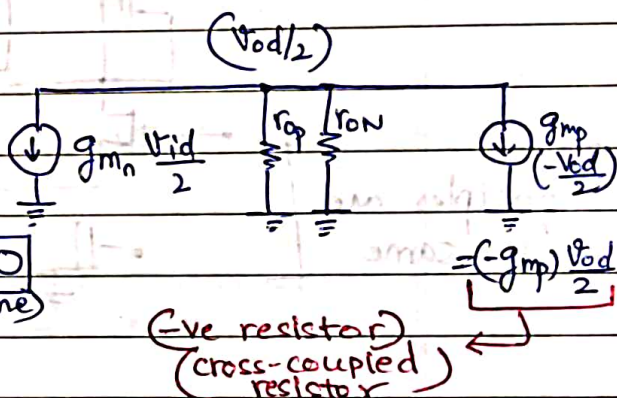 (Vod/2)
gmn Vid/2
rop
roN
gmp
(-Vod/2)
=(-gmp) Vod/2
ne)
(-ve resistor)
(cross-coupled
resistor)